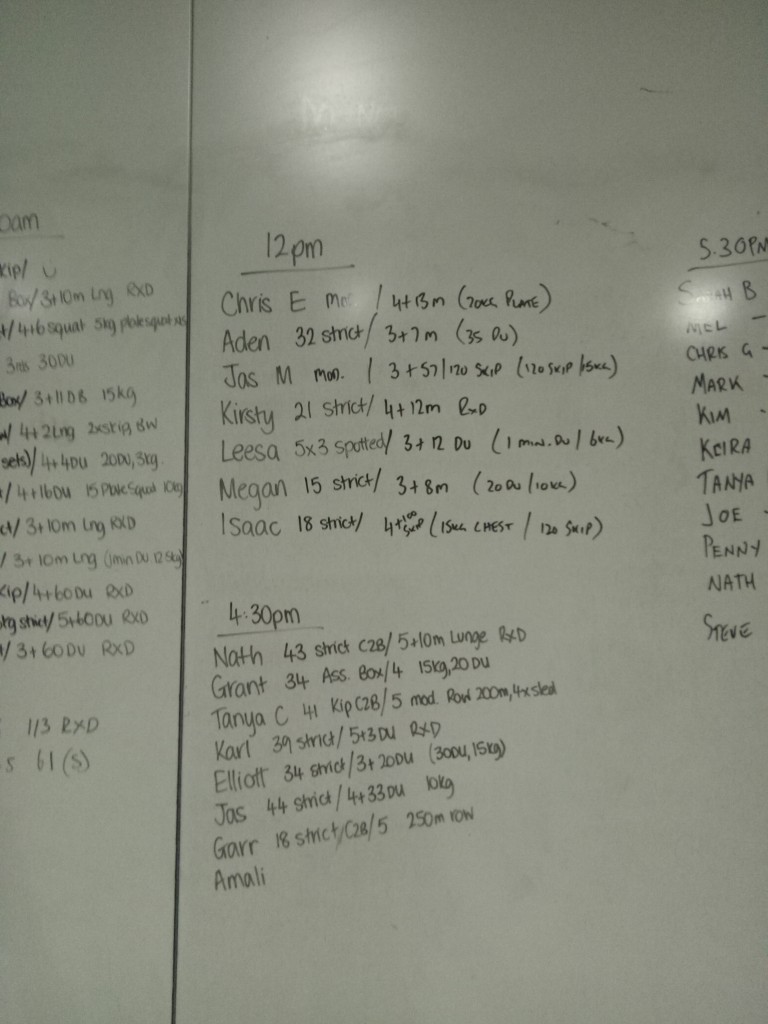 0am
Kip/
Box/3+10m Lng RXD
/4+6 squat 5kg plate squat
3mb 30DU
Box/3+11DB 15kg
/4+2Lng 2xskip BW
sets)/4+4DU 20DU,3kg
/4+16DU 15 Plate Squat 10kg
/3+10m Lng RXD
/3+10m Lng (1min DU 12.5kg)
Kip/4+60DU RXD
kg strict/5+60DU RXD
/3+60DU RXD
113 RXD
s 61(s)
12pm
Chris E / 4+13m (20KG PLATE)
Aden 32 strict/ 3+7m (35 DU)
Jas M mod. / 3+57/120 SKIP (120 SKIP /
Kirsty 21 strict/ 4+12m RxD
Leesa 5x3 spotted/ 3+12 DU (1 min. DU / 6KG)
Megan 15 strict/ 3+8m (20DU/10KG)
Isaac 18 strict/ 4+100 SKIP (15KG CHEST / 120 SKIP)
4:30pm
Nath 43 strict C2B/5+10m Lunge RXD
Grant 34 Ass. Box/4 15kg,20DU
Tanya C 41 Kip C2B/5 mod. Row 200m,4xsled
Karl 39 strict/5+3DU RXD
Elliott 34 strict/3+20DU (30DU,15kg)
Jas 44 strict/4+33DU 10kg
Garr 18 strict/C2B/5 250m row
Amali
5.30PM
SARAH B
MEL -
CHRIS G -
MARK -
KIM -
KEIRA
TANYA
JOE -
PENNY
NATH
STEVE